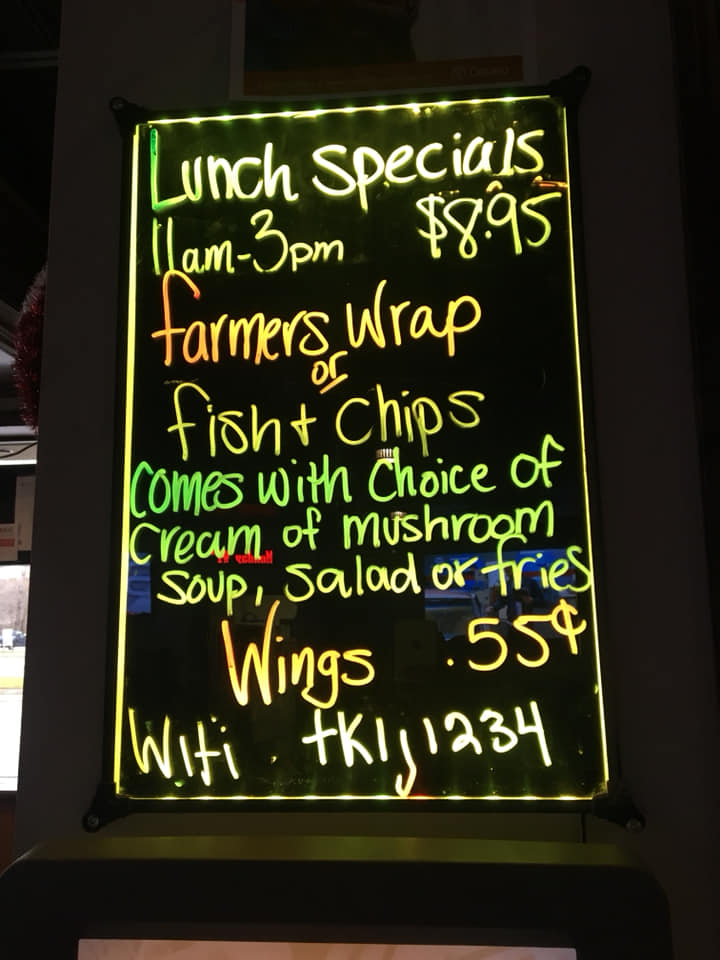 Lunch Specials
11am-3pm $8.95
farmers Wrap
or
fish + Chips
comes with Choice of
Cream of mushroom
soup, salad or fries
Wings .55¢
Wifi